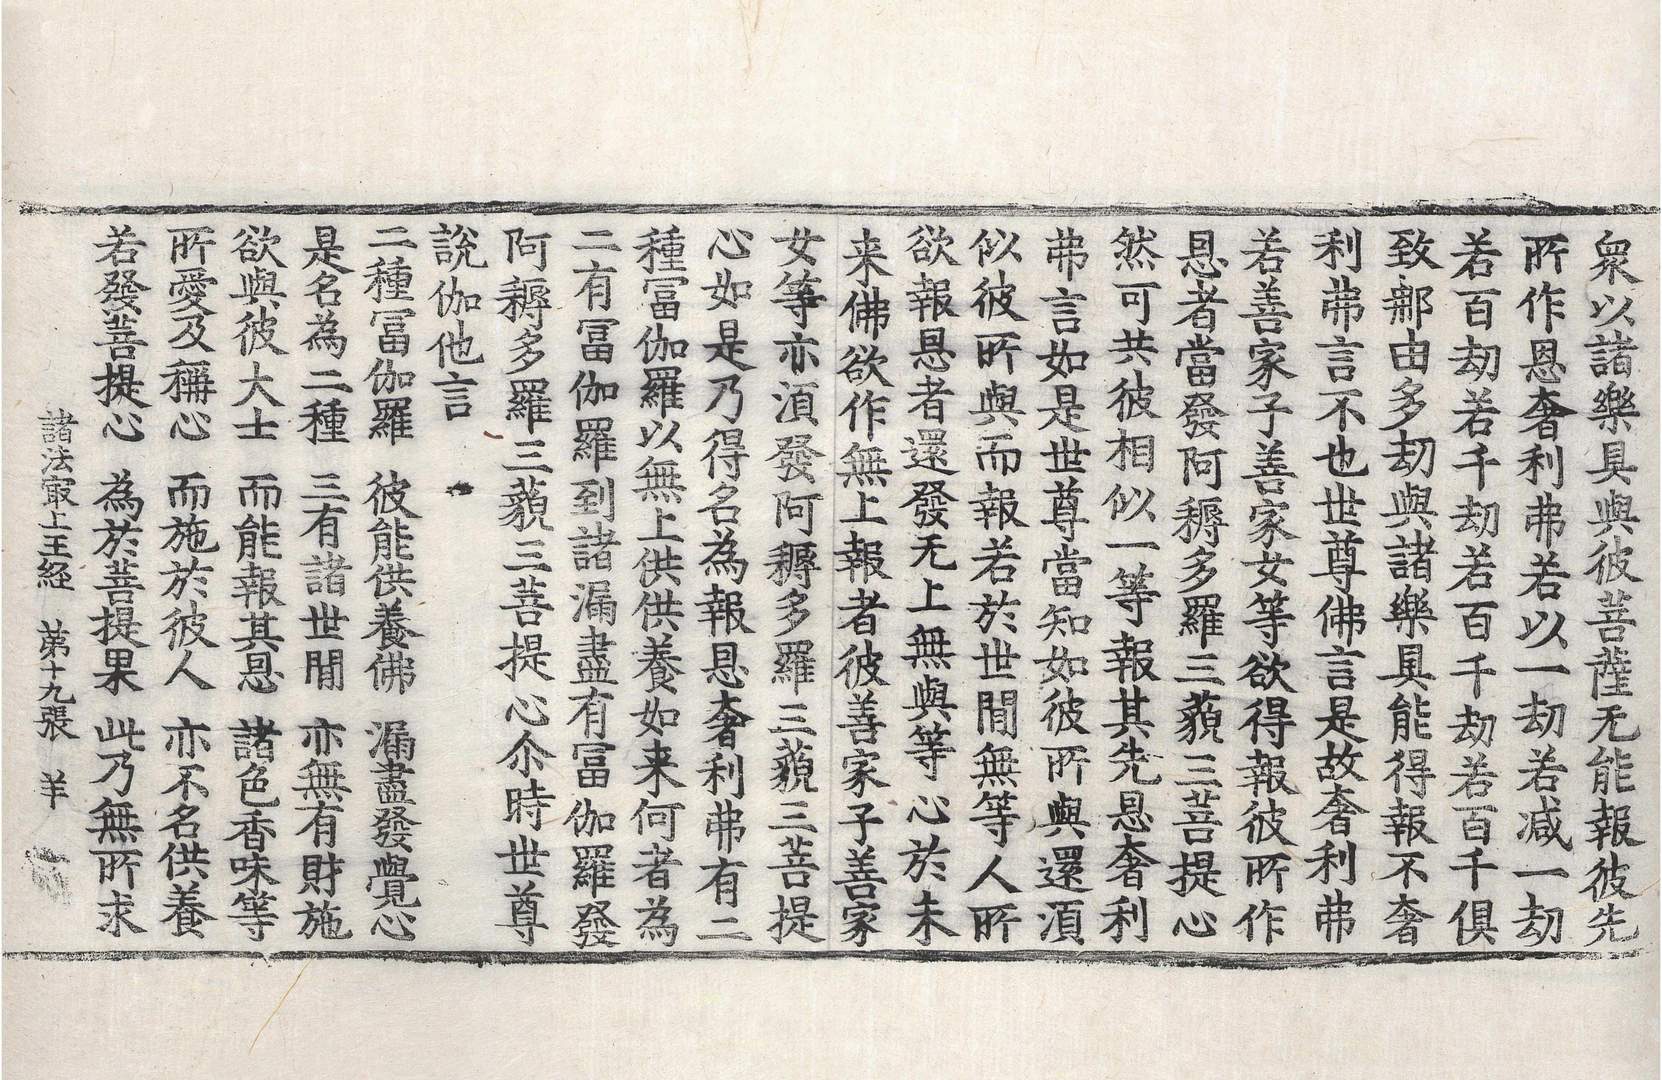 衆以諸樂具與彼菩薩无能報彼先
所作恩奢利弗若以一劫若減一劫
若百劫若千劫若百千劫若百千俱
致那由多劫與諸樂具能得報不奢
利弗言不也世尊佛言是故奢利弗
若善家子善家女等欲得報彼所作
恩者當發阿耨多羅三藐三菩提心
然可共彼相似一等報其先恩奢利
弗言如是世尊當知如彼所與還須
似彼所與而報若於世間無等人所
欲報恩者還發无上無與等心於未
来佛欲作無上報者彼善家子善家
女等亦須發阿耨多羅三藐三菩提
心如是乃得名為報恩奢利弗有二
種冨伽羅以無上供供養如来何者為
二有冨伽羅到諸漏盡有冨伽羅發
阿耨多羅三藐三菩提心尒時世尊
說伽他言
二種冨伽羅 彼能供養佛 漏盡發覺心
是名為二種 三有諸世間 亦無有財施
欲與彼大士 而能報其恩 諸色香味等
所愛及稱心 而施於彼人 亦不名供養
若發菩提心 為於菩提果 此乃無所求
諸法㝡上王経 第十九張 羊